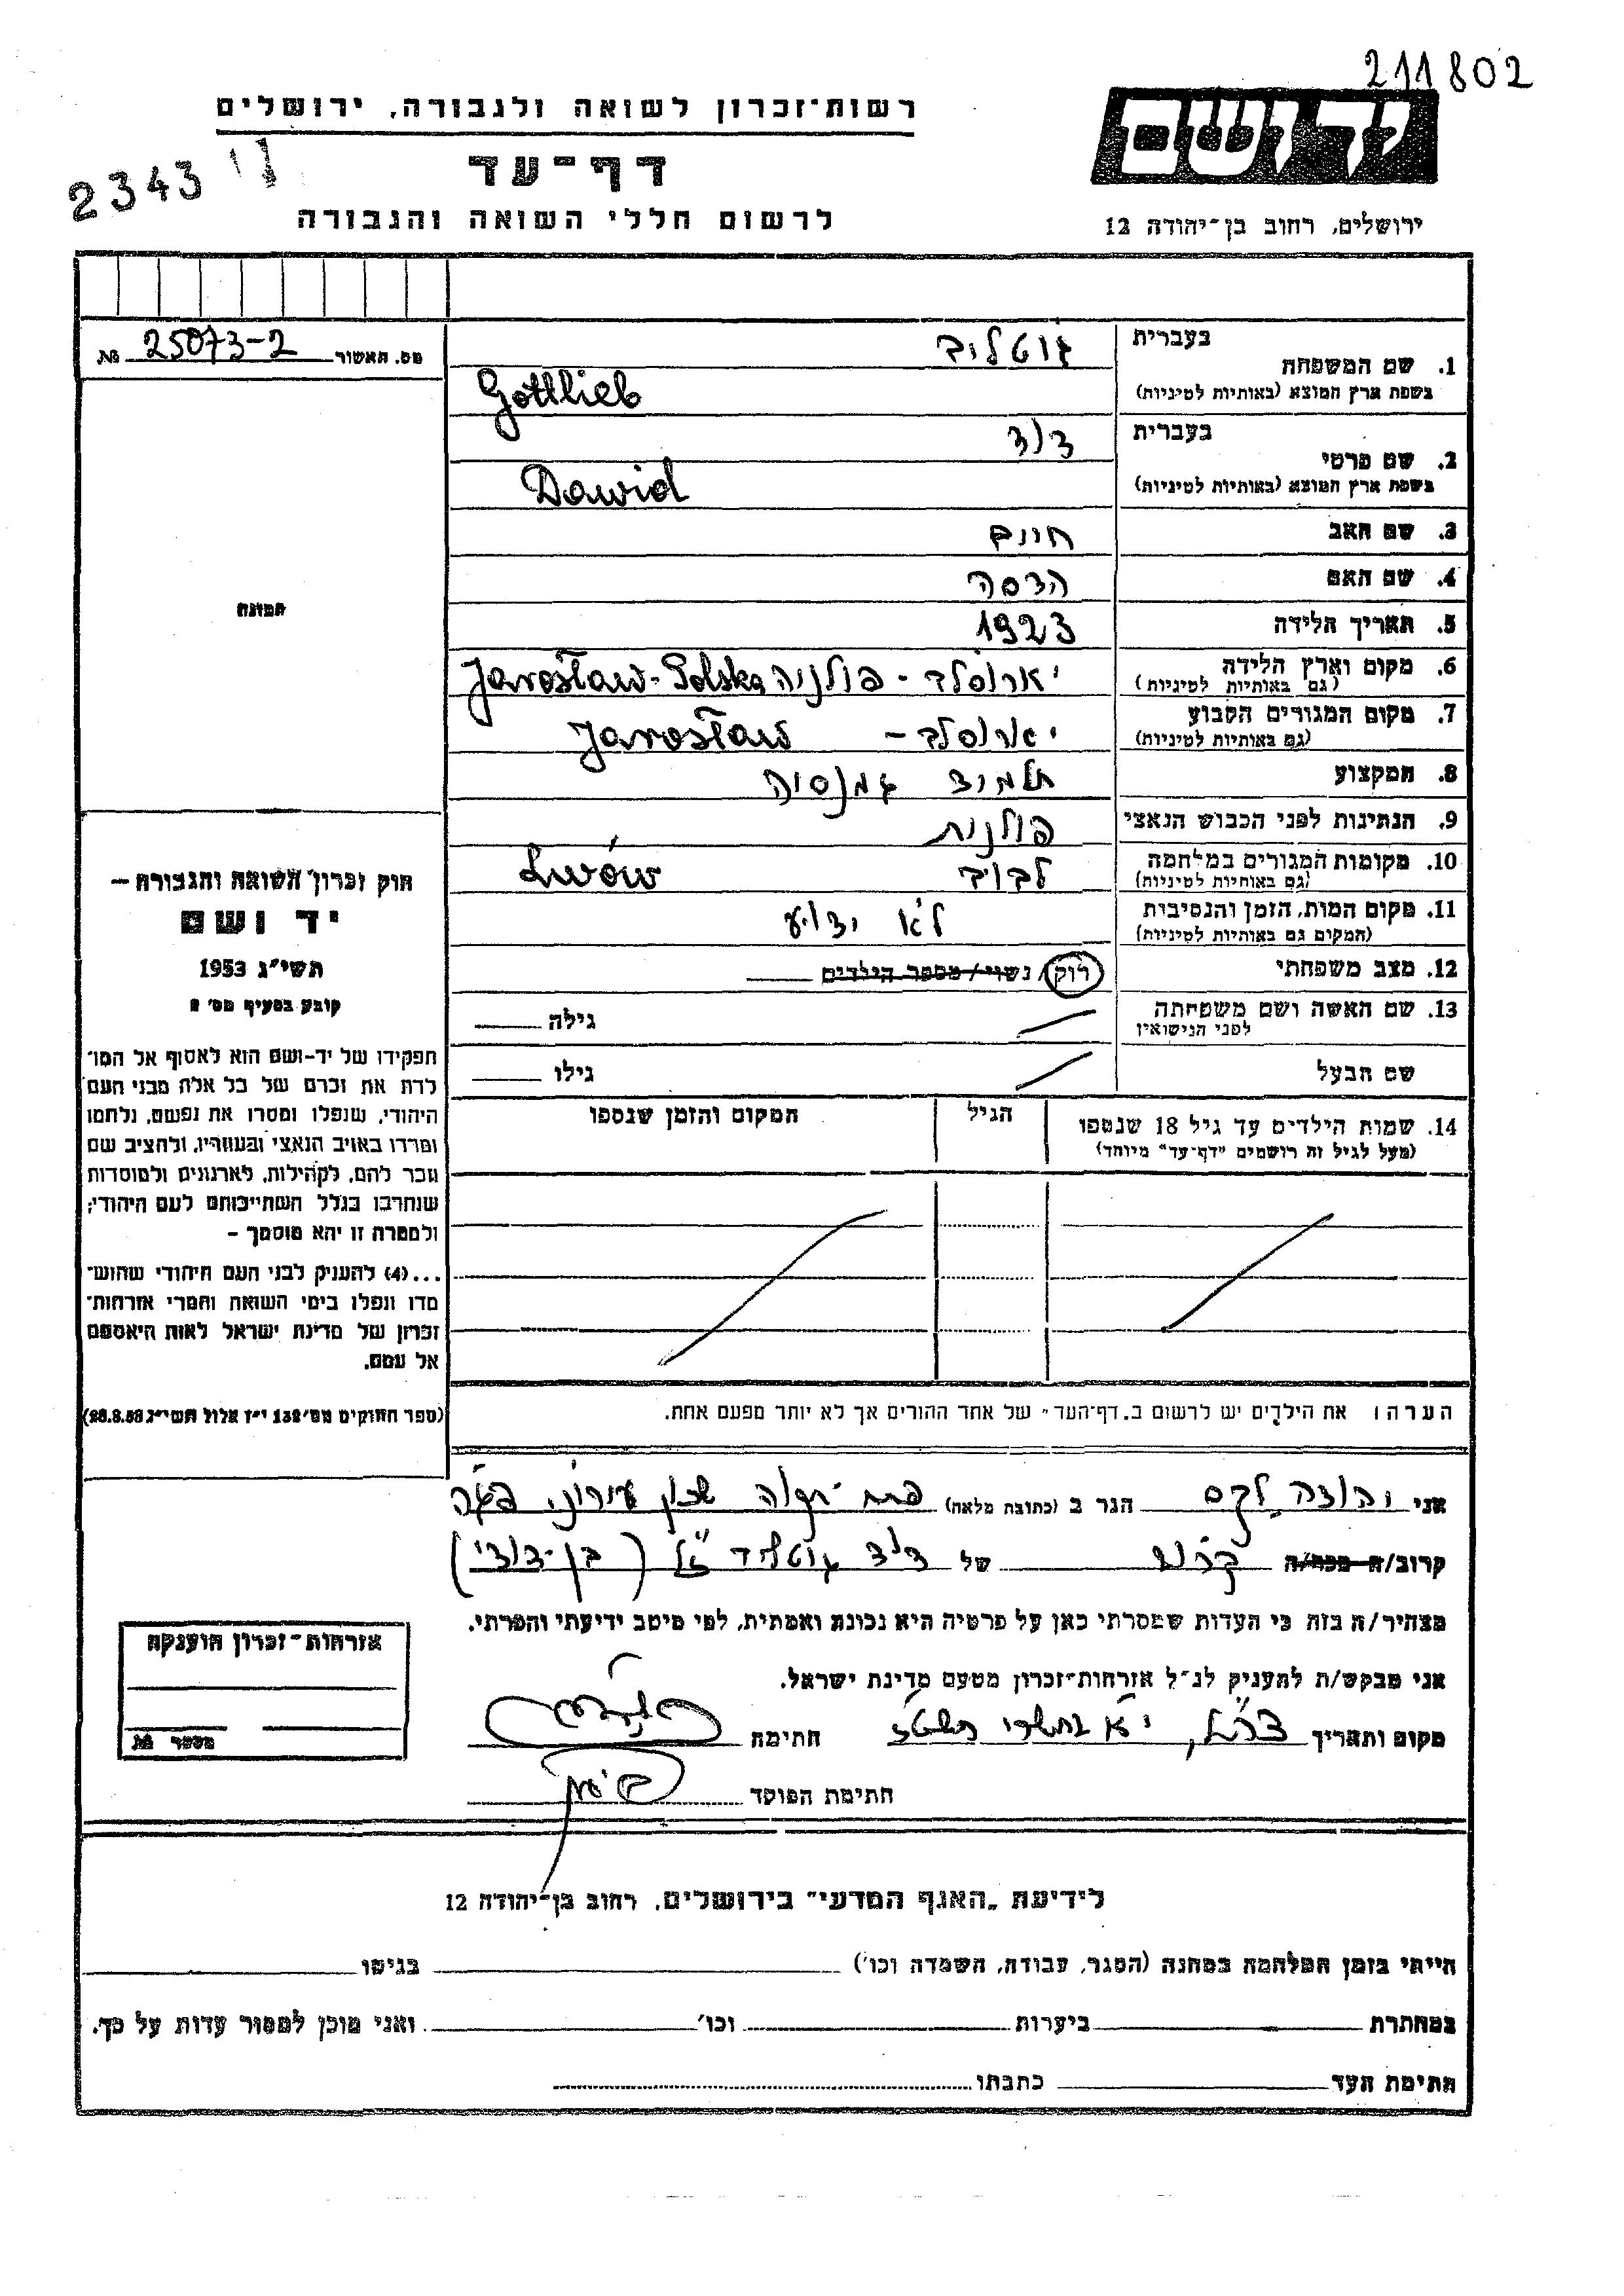 211802
יד ושם
ירושלים, רחוב בן-יהודה 12
רשות-זכרון לשואה ולגבורה, ירושלים
דף-עד
לרשום חללי השואה והגבורה
2343
מס. תאשור 25073-2 №
1. שם המשפחה
בעברית גוטליב
בשפת ארץ המוצא (באותיות לטיניות) Gottlieb
2. שם פרטי
בעברית דוד
בשפת ארץ המוצא (באותיות לטיניות) Dawid
3. שם האב חיים
4. שם האם הדסה
5. תאריך הלידה 1923
6. מקום וארץ הלידה יארוסלב - פולניה Jarosław - Polska
(גם באותיות לטיניות)
7. מקום המגורים הקבוע יארוסלב - Jarosław
(גם באותיות לטיניות)
8. המקצוע תלמיד גמנסיה
9. הנתינות לפני הכבוש הנאצי פולנית
10. מקומות המגורים במלחמה לבוב Lwów
(גם באותיות לטיניות)
11. מקום המות, הזמן והנסיבות לא ידוע
(המקום גם באותיות לטיניות)
12. מצב משפחתי רוק / נשוי / מספר הילדים
13. שם האשה ושם משפחתה גילה
לפני הנישואין
שם הבעל גילו
14. שמות הילדים עד גיל 18 שנספו הגיל המקום והזמן שנספו
(מעל לגיל זה רושמים "דף-עד" מיוחד)
הערה: את הילדים יש לרשום ב"דף-העד" של אחד ההורים אך לא יותר מפעם אחת.
תמונה
חוק זכרון השואה והגבורה –
יד ושם
תשי"ג 1953
קובע בסעיף מס' 2
תפקידו של יד-ושם הוא לאסוף אל המו-
לדת את זכרם של כל אלה מבני העם
היהודי, שנפלו ומסרו את נפשם, נלחמו
ומרדו באויב הנאצי ובעוזריו, ולהציב שם
וזכר להם, לקהילות, לארגונים ולמוסדות
שנחרבו בגלל השתייכותם לעם היהודי;
ולמטרה זו יהא מוסמך –
...(4) להעניק לבני העם היהודי שהוש-
מדו ונפלו בימי השואה והמרי אזרחות-
זכרון של מדינת ישראל לאות היאספם
אל עמם.
(ספר החוקים מס' 132 י"ז אלול תשי"ג 28.8.53)
אני יהודה לקס הגר ב (כתובת מלאה) פתח-תקוה שכון עירוני
קרוב/ה מכר/ה קרוב של דוד גוטליב ז"ל (בן-דודי)
מצהיר/ה בזה כי העדות שמסרתי כאן על פרטיה היא נכונה ואמתית, לפי מיטב ידיעתי והכרתי.
אני מבקש/ת להעניק לנ"ל אזרחות-זכרון מטעם מדינת ישראל.
מקום ותאריך חתימה
חתימת הפוקד
אזרחות-זכרון הוענקה
מספר №
לידיעת "האגף המדעי" בירושלים, רחוב בן-יהודה 12
הייתי בזמן המלחמה במחנה (הסגר, עבודה, השמדה וכו') בגיטו
במחתרת ביערות וכו' ואני מוכן למסור עדות על כך.
חתימת העד כתבתו